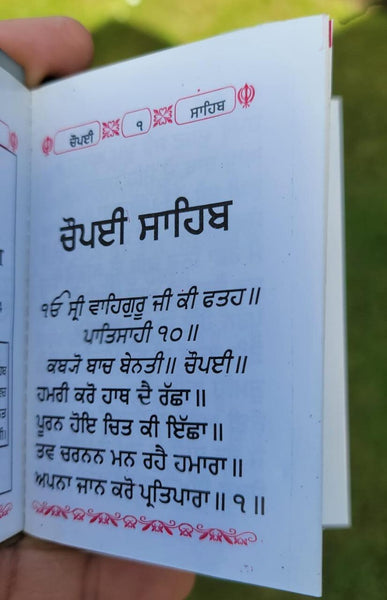 ਚੌਪਈ ੧ ਸਾਹਿਬ
ਚੌਪਈ ਸਾਹਿਬ
ੴ ਸ੍ਰੀ ਵਾਹਿਗੁਰੂ ਜੀ ਕੀ ਫਤਹ॥
ਪਾਤਿਸਾਹੀ ੧੦॥
ਕਬ੍ਯੋ ਬਾਚ ਬੇਨਤੀ॥ ਚੌਪਈ॥
ਹਮਰੀ ਕਰੋ ਹਾਥ ਦੈ ਰੱਛਾ॥
ਪੂਰਨ ਹੋਇ ਚਿਤ ਕੀ ਇੱਛਾ॥
ਤਵ ਚਰਨਨ ਮਨ ਰਹੈ ਹਮਾਰਾ॥
ਅਪਨਾ ਜਾਨ ਕਰੋ ਪ੍ਰਤਿਪਾਰਾ॥੧॥